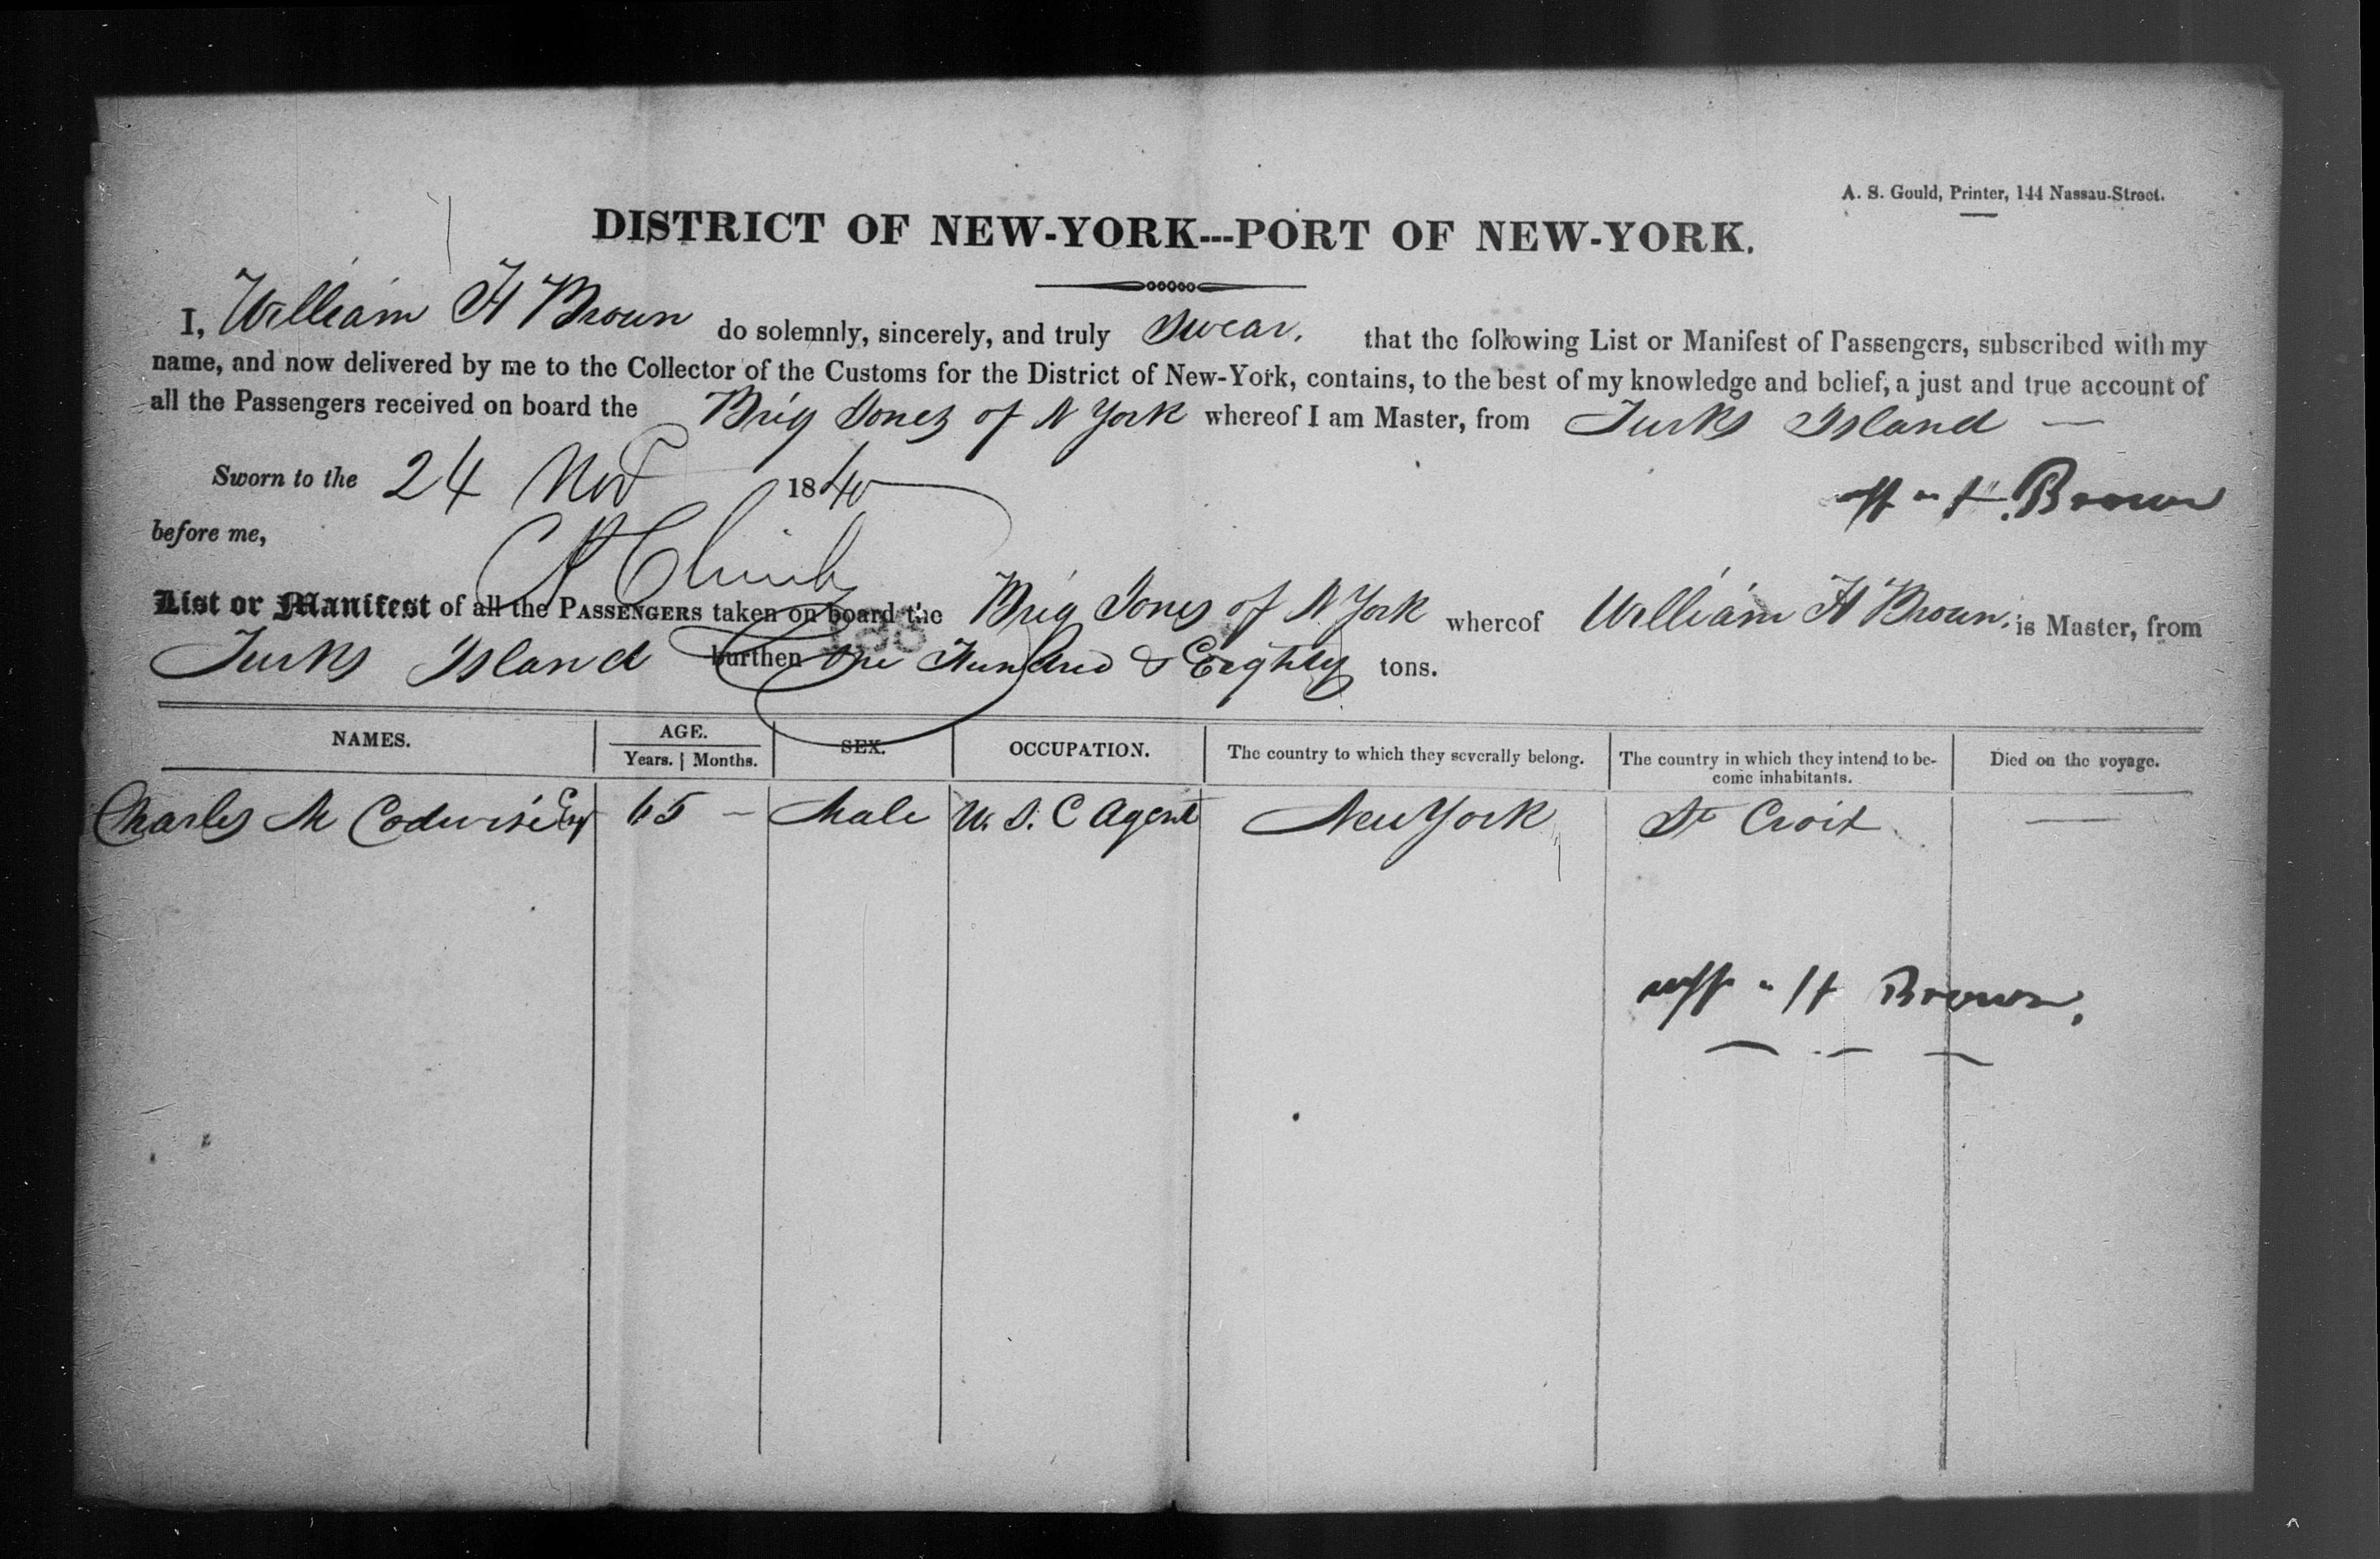 A. S. Gould, Printer, 144 Nassau-Street.
DISTRICT OF NEW-YORK---PORT OF NEW-YORK.
I, William H Brown do solemnly, sincerely, and truly Swear, that the following List or Manifest of Passengers, subscribed with my
name, and now delivered by me to the Collector of the Customs for the District of New-York, contains, to the best of my knowledge and belief, a just and true account of
all the Passengers received on board the Brig Jones of N York whereof I am Master, from Turks Island —
Sworn to the 24 Nov 1840
H. Brown
before me,
List or Manifest of all the PASSENGERS taken on board the Brig Jones of N York whereof William H Brown. is Master, from
Turks Island burthen One Hundred & Eighty tons.
NAMES. AGE. SEX. OCCUPATION. The country to which they severally belong. The country in which they intend to be- Died on the voyage.
Years. Months. come inhabitants.
Charles M Codwise Esq 65 — Male U. S. C Agent New York St Croix —
H Brown,